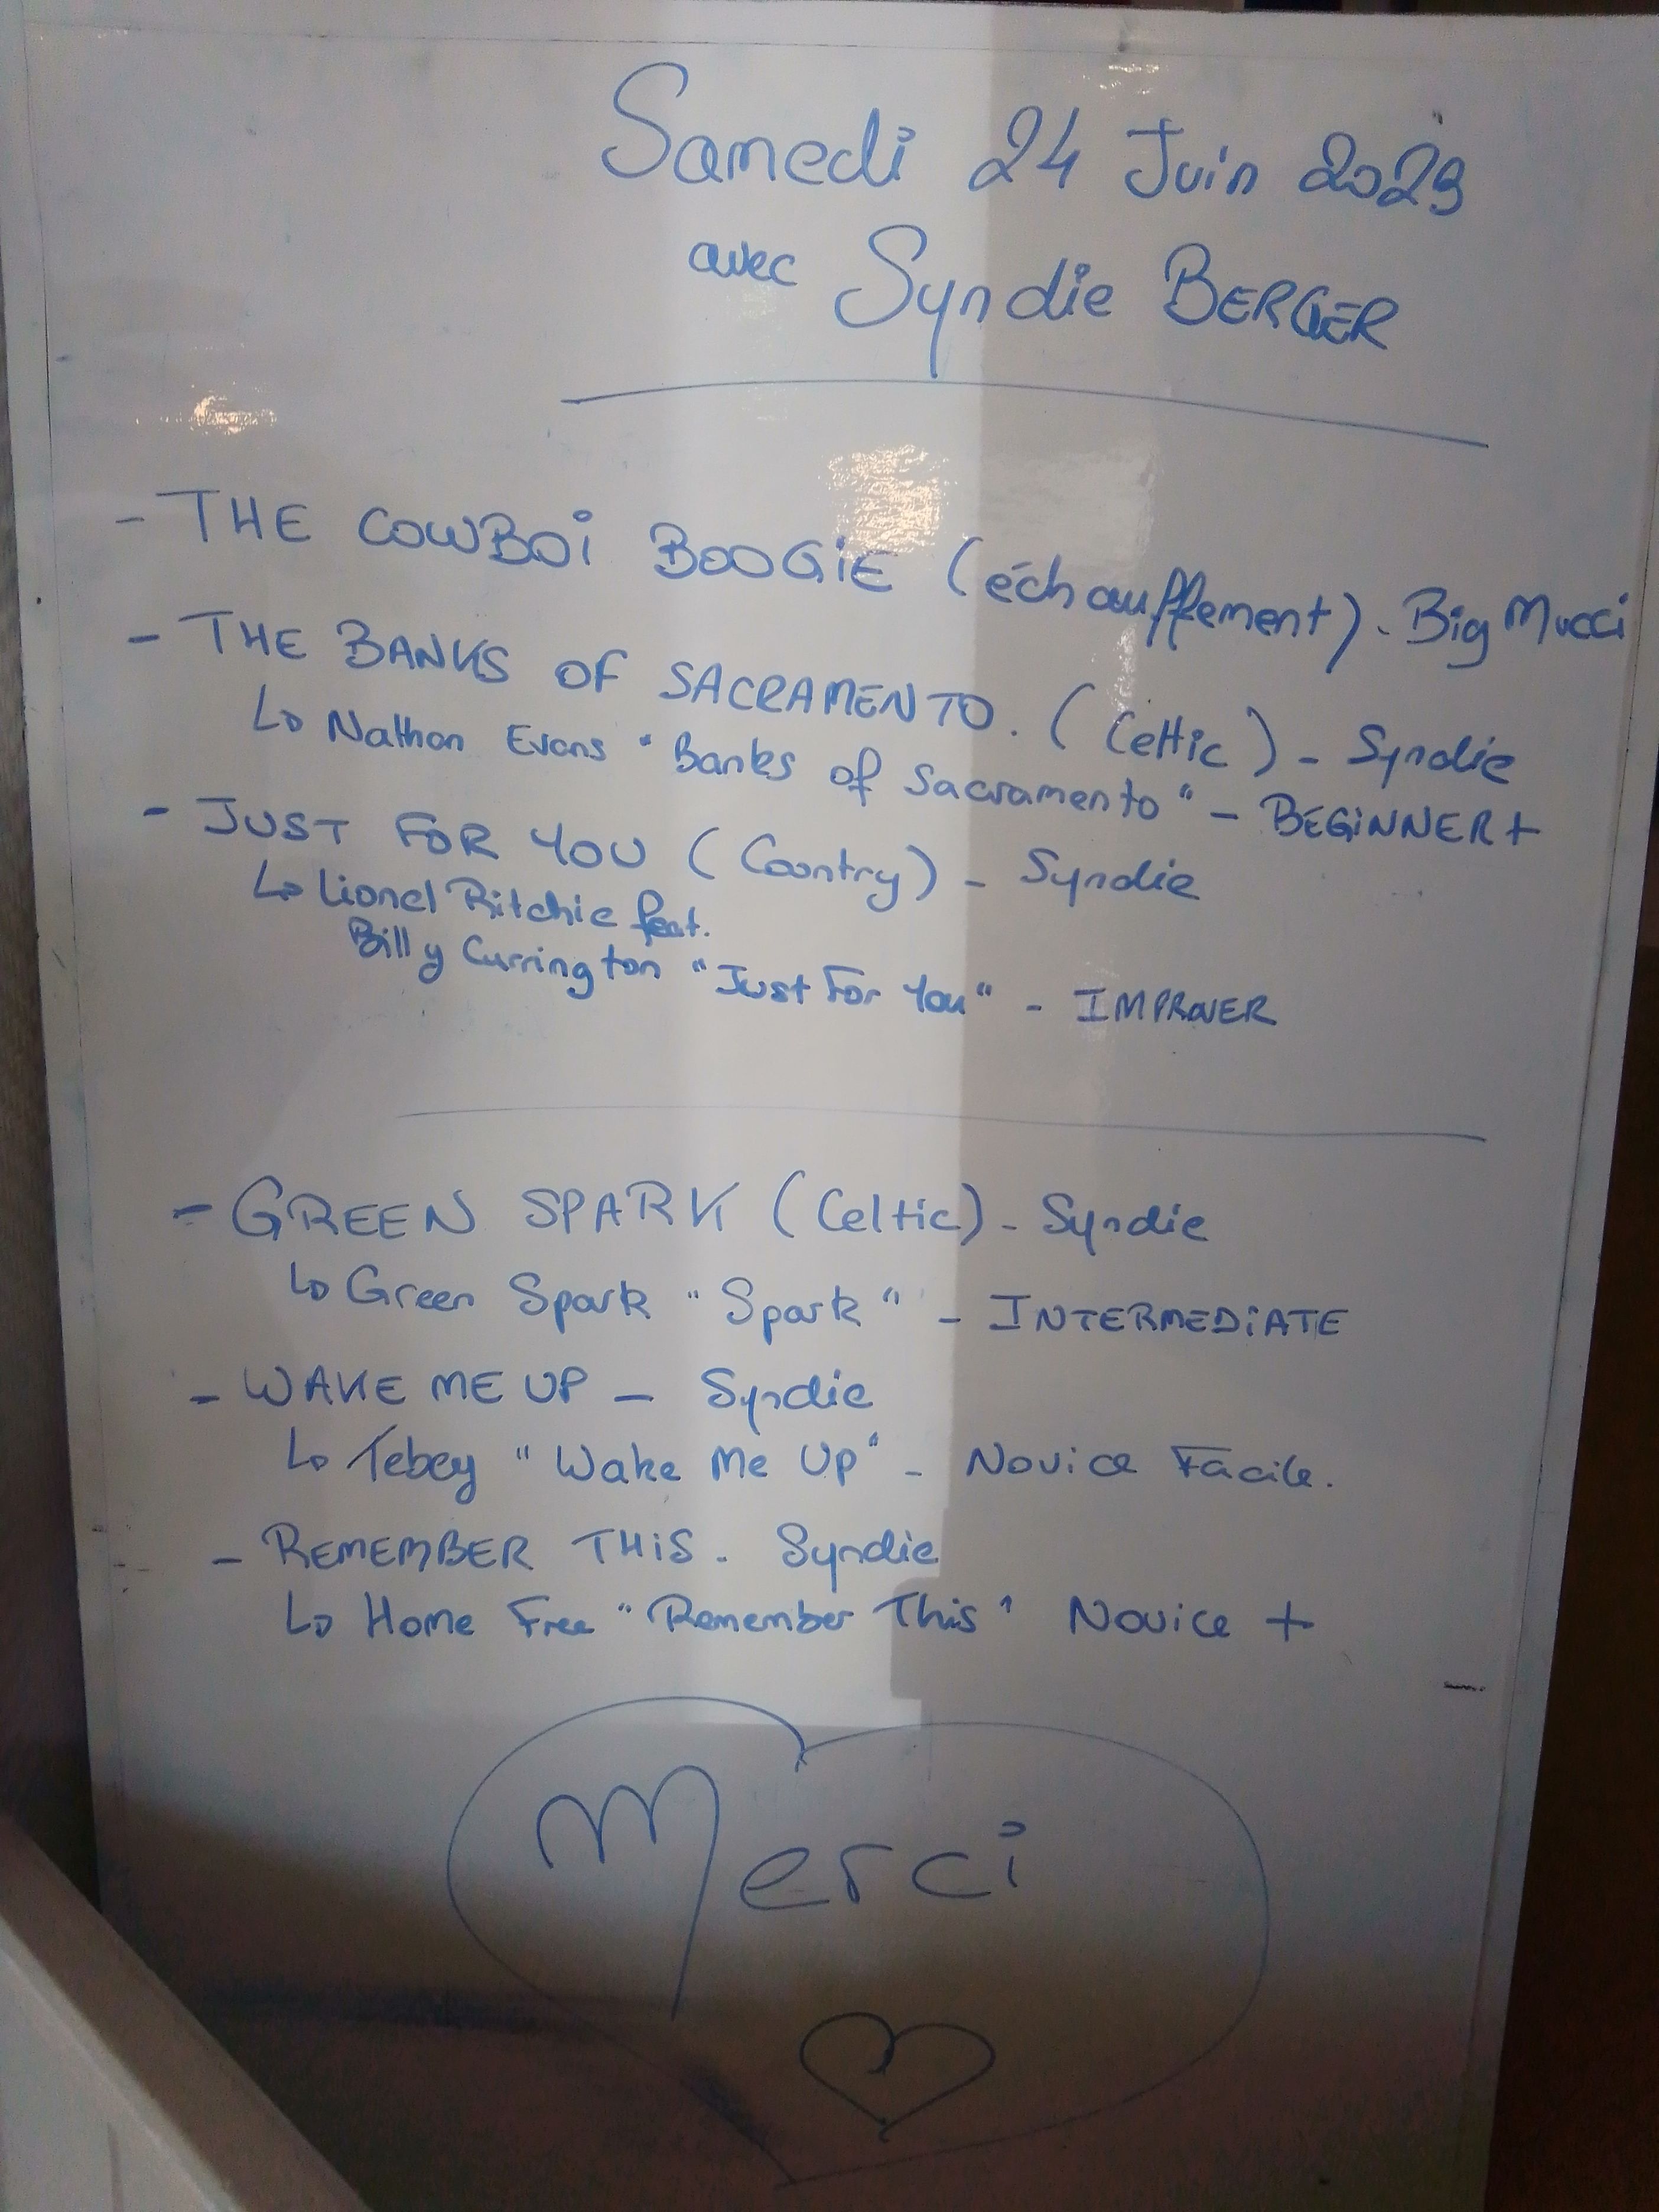 Samedi 24 Juin 2023
avec Syndie BERGER
- THE COWBOi BOOGiE (échauffement). Big Mucci
- THE BANKS OF SACRAMENTO. (Celtic) - Syndie
↳ Nathan Evans "Banks of Sacramento" - BEGiNNER +
- JUST FOR YOU (Country) - Syndie
↳ Lionel Ritchie feat.
Billy Currington "Just For You" - IMPROVER
- GREEN SPARK (Celtic) - Syndie
↳ Green Spark "Spark" - INTERMEDiATE
- WAKE ME UP - Syndie
↳ Tebey "Wake Me Up" - Novice Facile.
- REMEMBER THiS. Syndie
↳ Home Free "Remember This" Novice +
Merci